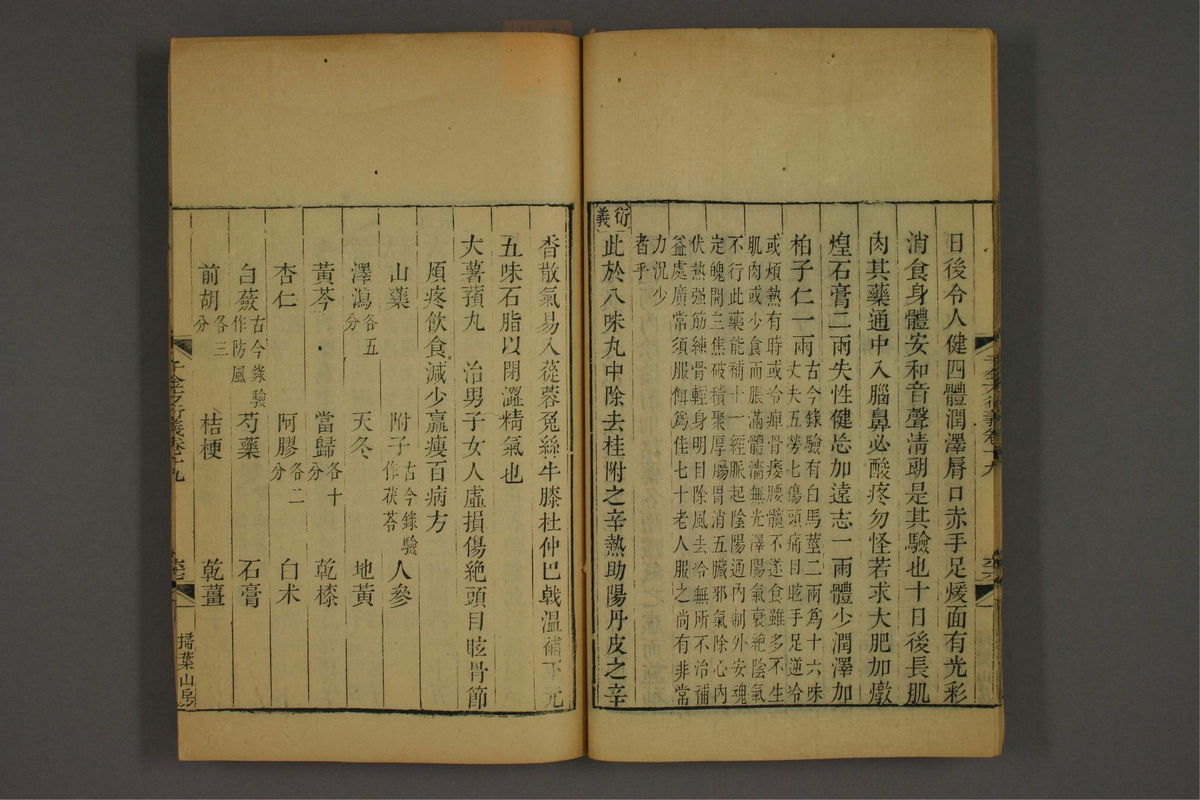 日後令人健四體潤澤脣口赤手足煖面有光彩
消食身體安和音聲清朗是其驗也十日後長肌
肉其藥通中入腦鼻必酸疼勿怪若求大肥加燉
煌石膏二兩失性健忘加遠志一兩體少潤澤加
柏子仁一兩
古今錄驗有白馬莖二兩爲十六味
丈夫五勞七傷頭痛目眩手足逆冷
或煩熱有時或令痺骨痿腰髖不遂食雖多不生
肌肉或少食而脹滿體濇無光澤陽氣衰絶陰氣
不行此藥能補十二經脈起陰陽通內制外安魂
定魄開三焦破積聚厚腸胃消五臟邪氣除心內
伏熱强筋練骨輕身明目除風去冷無所不治補
益處廣常須服餌爲佳七十老人服之尚有非常
力況少
者乎
衍義
此於八味丸中除去桂附之辛熱助陽丹皮之辛
千金方衍義卷十九
香散氣易入蓯蓉兔絲牛膝杜仲巴戟溫補下元
五味石脂以閉澀精氣也
大薯蕷丸 治男子女人虛損傷絶頭目眩骨節
煩疼飲食減少羸瘦百病方
山藥 附子古今錄驗作茯苓 人參
澤瀉各五分 天冬 地黃
黃芩 當歸各十分 乾桼
杏仁 阿膠各二分 白术
白蘞古今錄驗作防風 芍藥 石膏
前胡各三分 桔梗 乾薑
千金方衍義卷十九
掃葉山房